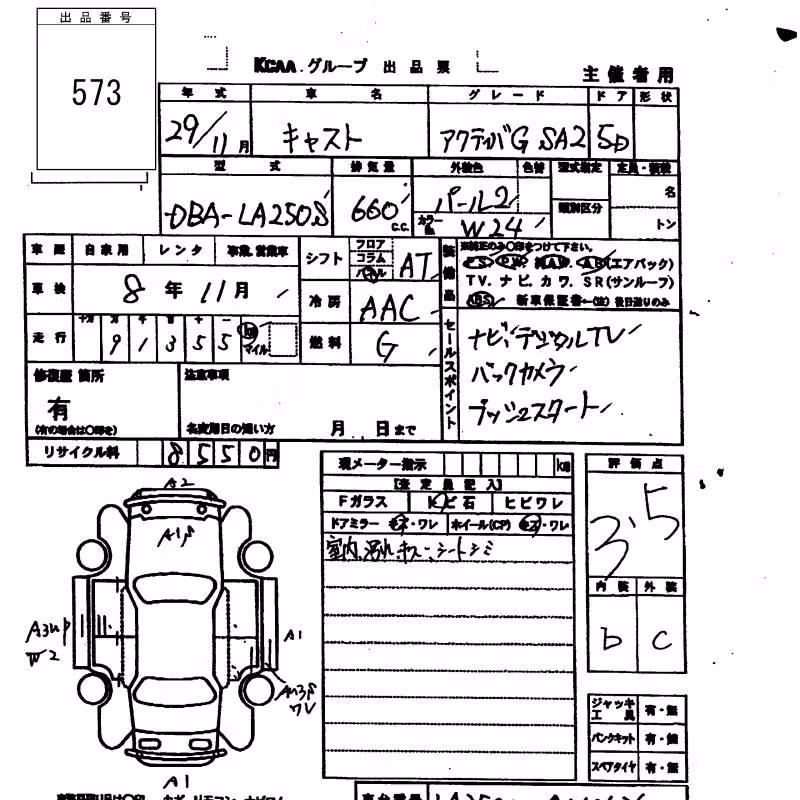 出品番号
573
KCAA.グループ 出品票
主催者用
年式 車名 グレード ドア 形状
29/11月 キャスト アクティバG SA2 5D
型式 排気量 外装色 色替 型式指定 定員・積載
DBA-LA250S 660 C.C. パール2 類別区分 名
カラー W24 トン
車歴 自家用 レンタ 事業.営業車
シフト フロア コラム AT
装備品
※純正のみ〇印をつけて下さい。
PS PW 純AW AB(エアバック)
TV. ナビ. カワ. SR(サンルーフ)
新車保証書←(注)後日送りのみ
車検 8年11月
冷房 AAC
走行 十万 万 千 百 十 一
9 1 3 5 5 km マイル
燃料 G
セールスポイント
ナビ.デジタルTV
バックカメラ
プッシュスタート
修復歴 箇所
有
(有の場合は〇印を)
注意事項
名変期日の短い方 月 日まで
リサイクル料 8550円
現メーター指示 km
【査定員記入】
Fガラス トビ石 ヒビワレ
ドアミラー キズ・ワレ ホイール(CP) キズ・ワレ
室内汚れキズ シートシミ
評価点
3.5
内装 外装
b c
A2
A1
A1
W2
A1
ジャッキ 工具 有・無
パンクキット 有・無
スペアタイヤ 有・無
車台番号